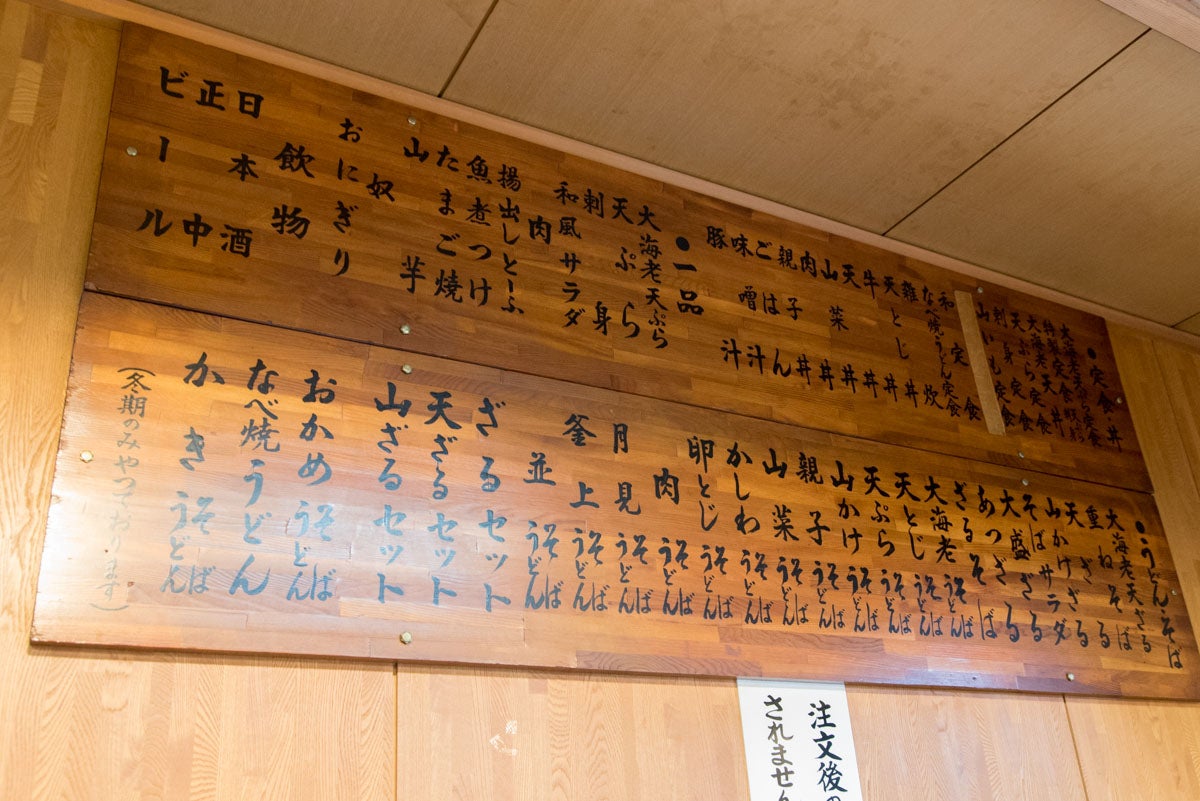 ●定食 丼
大海老天ぷら定食
特製定食
大海老天丼
天ぷら定食
刺身定食
山いも定食
和定食
なべ焼うどん定食
雑炊
天とじ丼
牛丼
天丼
山菜丼
肉丼
親子丼
ごはん
味噌汁
豚汁
●一品
大海老天ぷら
天ぷら
刺身
和風サラダ
肉
揚出しとーふ
魚煮つけ
たまご焼
山芋
奴
おにぎり
飲物
日本酒
正中
ビール
●うどんそば
大海老天ざる
重ねそば
天ざる
山かけざる
そばサラダ
大盛ざる
あつざる
ざるそば
大海老うどんそば
天とじうどんそば
天ぷらうどんそば
山かけうどんそば
親子うどんそば
山菜うどんそば
かしわうどんそば
卵とじうどんそば
肉うどんそば
月見うどんそば
釜上うどんそば
並うどんそば
ざるセット
天ざるセット
山ざるセット
おかめうどんそば
なべ焼うどん
かきうどんそば
(冬期のみやっております)
注文後の
されません